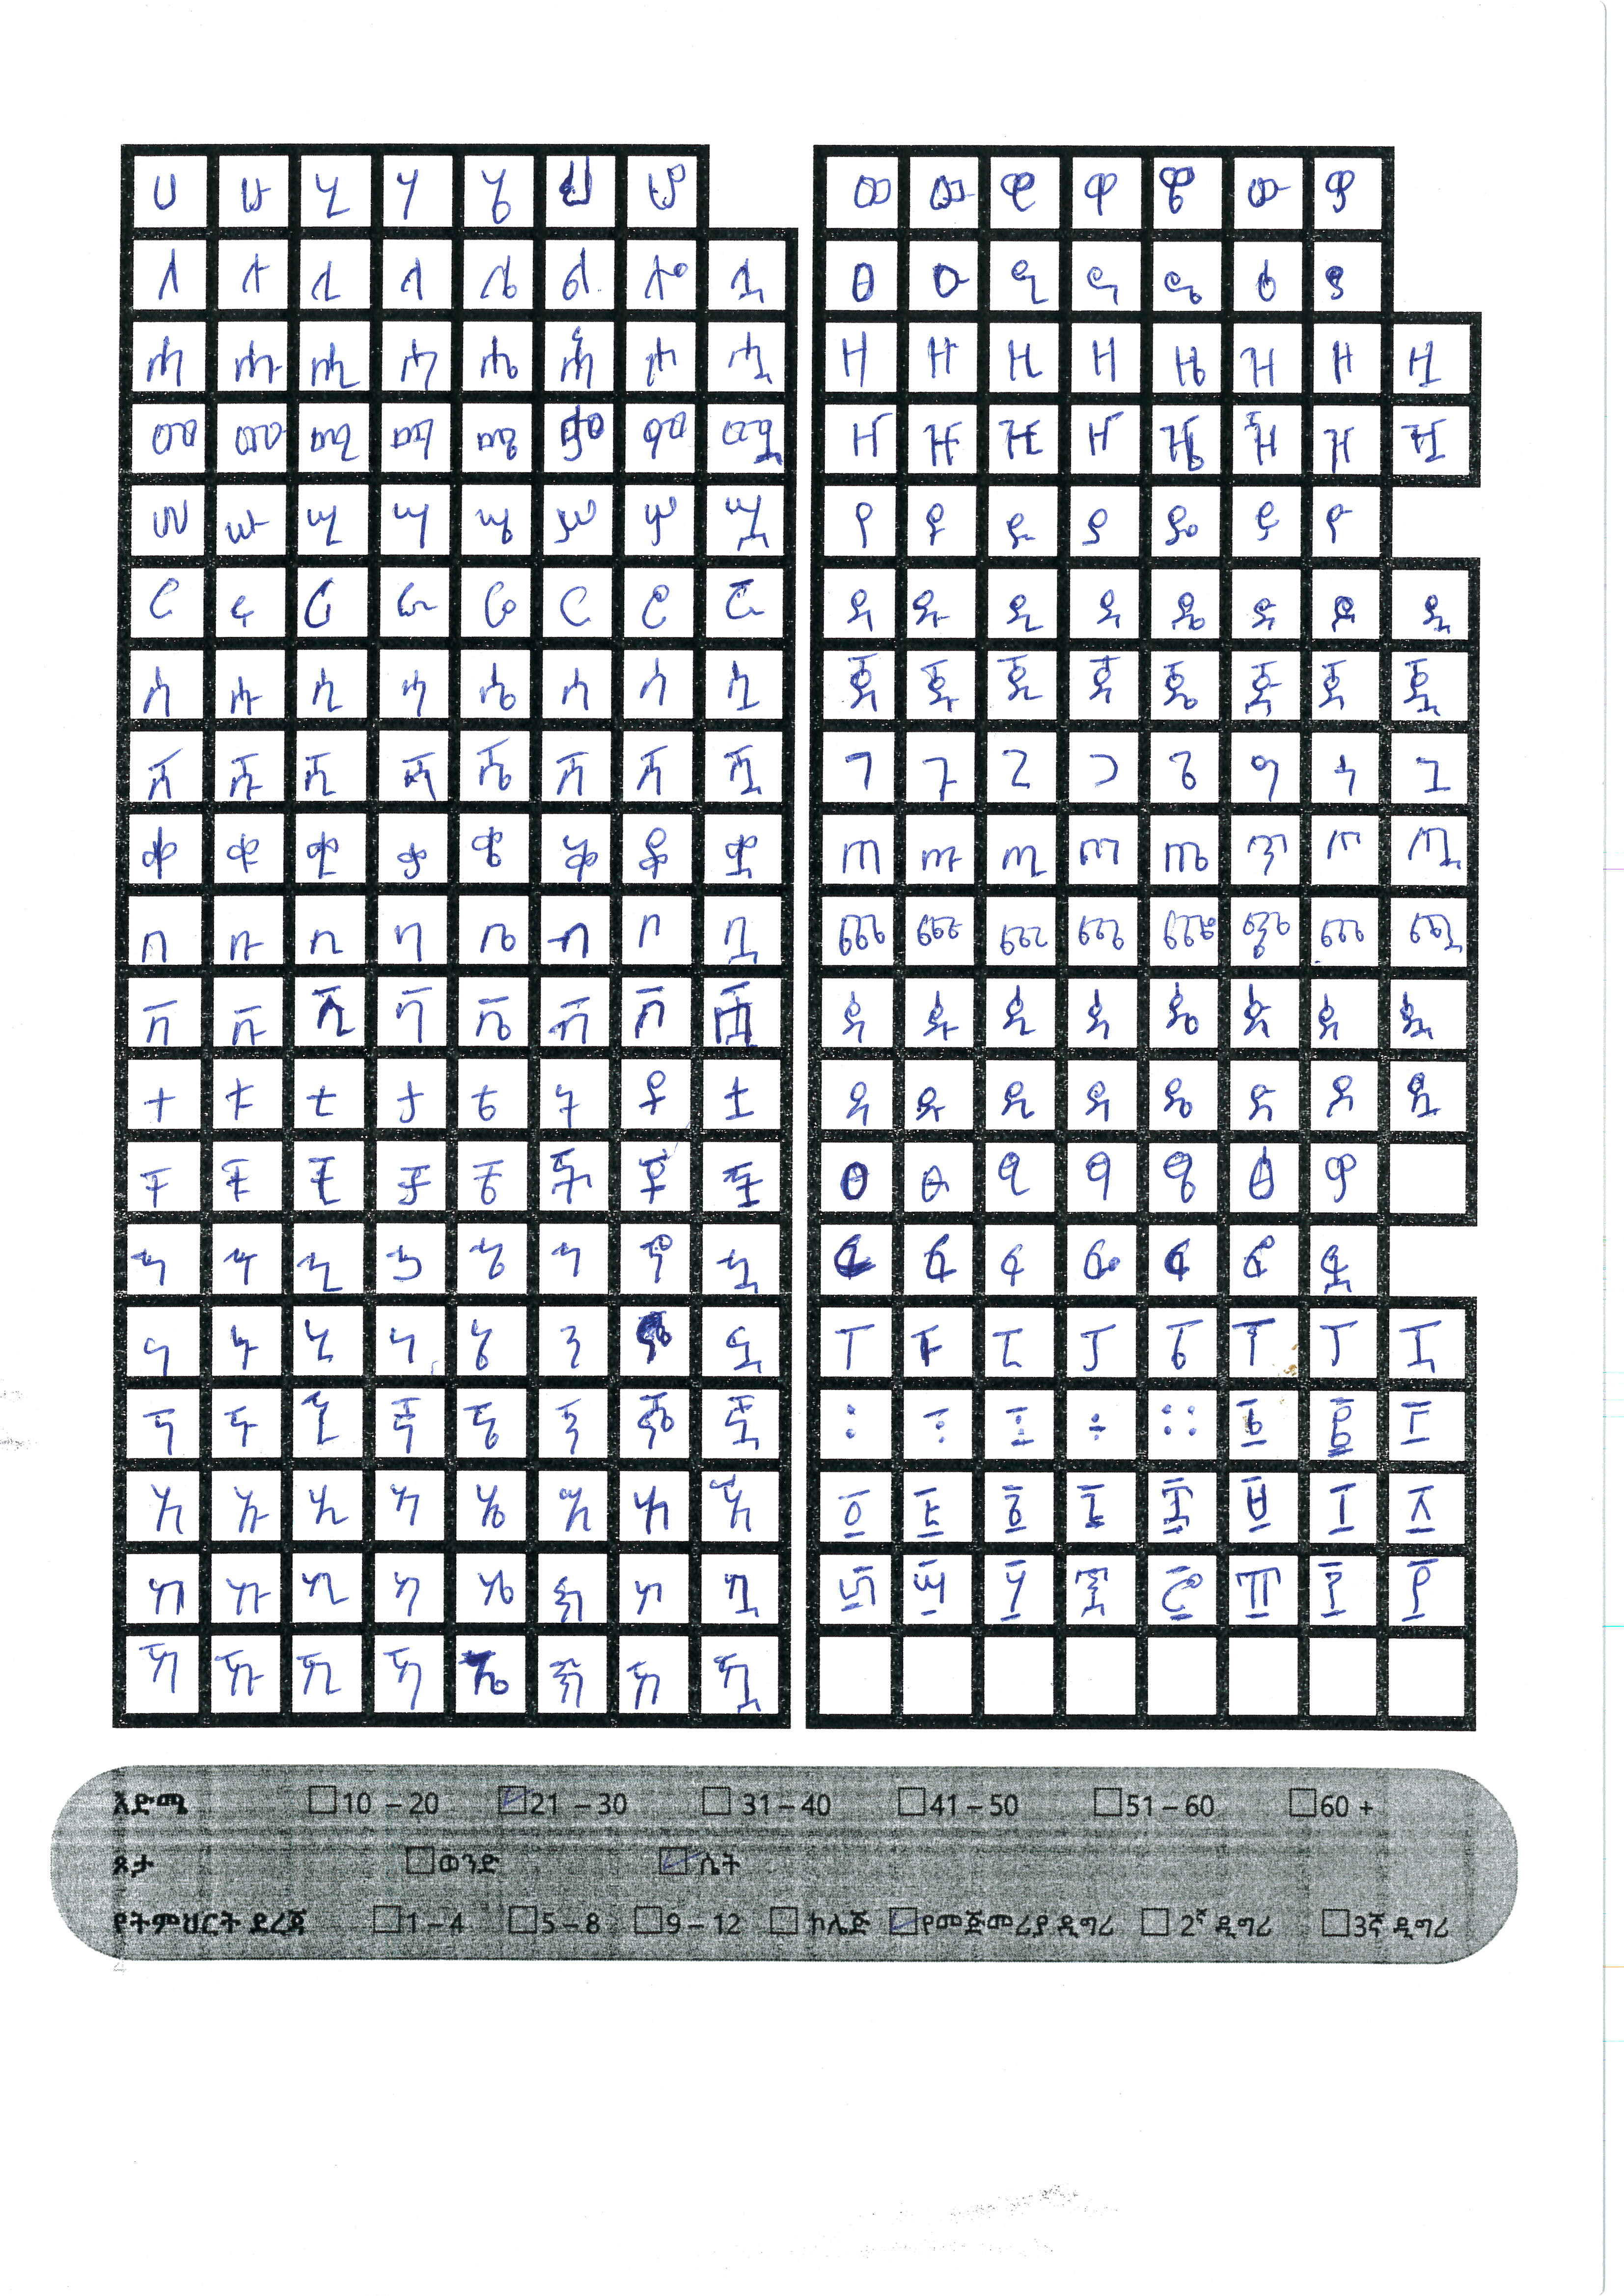 ሀ ሁ ሂ ሃ ሄ ህ ሆ
ለ ሉ ሊ ላ ሌ ል ሎ ሏ
ሐ ሑ ሒ ሓ ሔ ሕ ሖ ሗ
መ ሙ ሚ ማ ሜ ም ሞ ሟ
ሠ ሡ ሢ ሣ ሤ ሥ ሦ ሧ
ረ ሩ ሪ ራ ሬ ር ሮ ሯ
ሰ ሱ ሲ ሳ ሴ ስ ሶ ሷ
ሸ ሹ ሺ ሻ ሼ ሽ ሾ ሿ
ቀ ቁ ቂ ቃ ቄ ቅ ቆ ቋ
በ ቡ ቢ ባ ቤ ብ ቦ ቧ
ቨ ቩ ቪ ቫ ቬ ቭ ቮ ቯ
ተ ቱ ቲ ታ ቴ ት ቶ ቷ
ቸ ቹ ቺ ቻ ቼ ች ቾ ቿ
ኀ ኁ ኂ ኃ ኄ ኅ ኆ ኋ
ነ ኑ ኒ ና ኔ ን ኖ ኗ
ኘ ኙ ኚ ኛ ኜ ኝ ኞ ኟ
አ ኡ ኢ ኣ ኤ እ ኦ ኧ
ከ ኩ ኪ ካ ኬ ክ ኮ ኳ
ኸ ኹ ኺ ኻ ኼ ኽ ኾ ዃ
ወ ዉ ዊ ዋ ዌ ው ዎ
ዐ ዑ ዒ ዓ ዔ ዕ ዖ
ዘ ዙ ዚ ዛ ዜ ዝ ዞ ዟ
ዠ ዡ ዢ ዣ ዤ ዥ ዦ ዧ
የ ዩ ዪ ያ ዬ ይ ዮ
ደ ዱ ዲ ዳ ዴ ድ ዶ ዷ
ጀ ጁ ጂ ጃ ጄ ጅ ጆ ጇ
ገ ጉ ጊ ጋ ጌ ግ ጎ ጓ
ጠ ጡ ጢ ጣ ጤ ጥ ጦ ጧ
ጨ ጩ ጪ ጫ ጬ ጭ ጮ ጯ
ጰ ጱ ጲ ጳ ጴ ጵ ጶ ጷ
ጸ ጹ ጺ ጻ ጼ ጽ ጾ ጿ
ፀ ፁ ፂ ፃ ፄ ፅ ፆ
ፈ ፉ ፊ ፋ ፌ ፍ ፎ ፏ
ፐ ፑ ፒ ፓ ፔ ፕ ፖ ፗ
፡ ፣ ፤ ፥ ። ፩ ፪ ፫
፬ ፭ ፮ ፯ ፰ ፱ ፲ ፳
፴ ፵ ፶ ፷ ፸ ፹ ፺ ፻
እድሜ 10 – 20 21 – 30 31 – 40 41 – 50 51 – 60 60 +
ጾታ ወንድ ሴት
የትምህርት ደረጃ 1 – 4 5 – 8 9 – 12 ኮሌጅ የመጀመሪያ ዲግሪ 2ኛ ዲግሪ 3ኛ ዲግሪ